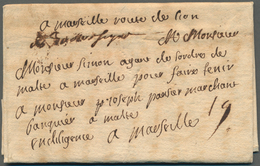 a marseille route de lion
A Monsieur
Monsieur Simon agare de lordre de
malte a marseille pour faire tenir
a monsieur joseph marchant
banquier a malte
en diligence a Marseille